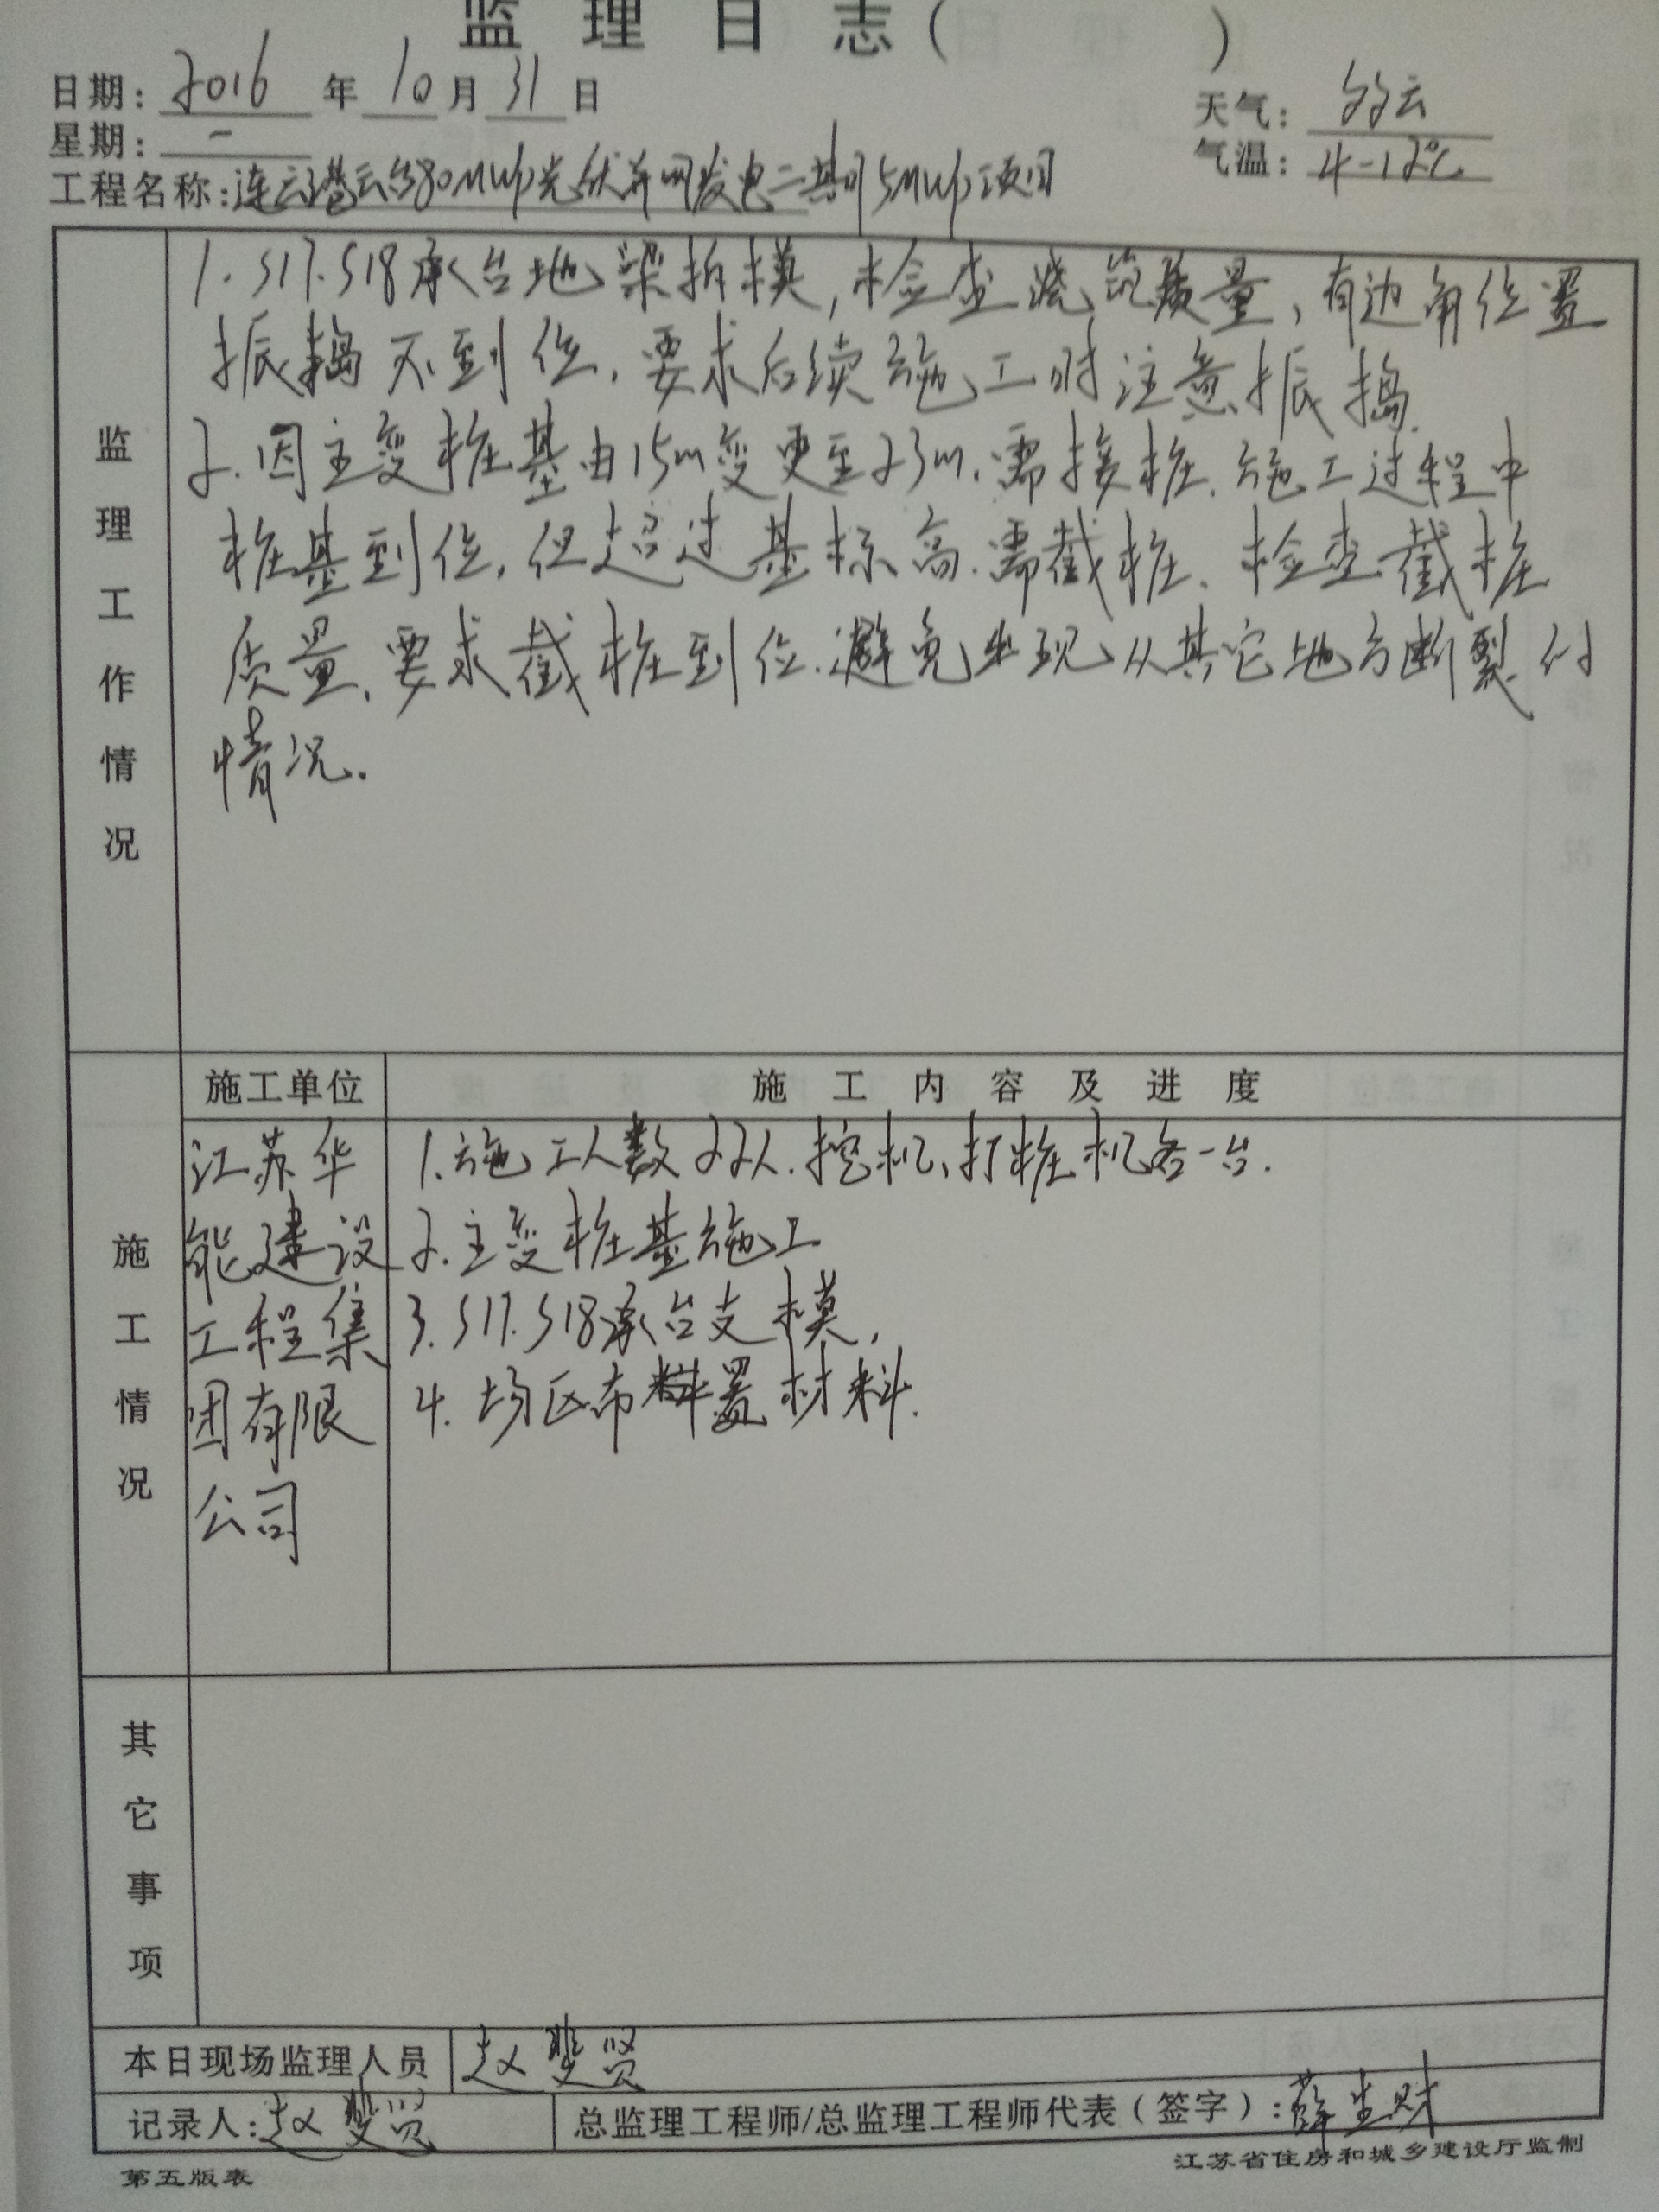 监理日志( )
日期: 2016 年 10 月 31 日
天气: 多云
星期: 一
气温: 4-12℃
工程名称:连云港云台80MWp光伏并网发电二期15MWp项目
监理工作情况
1. S17. S18承台地梁拆模,检查浇筑质量,有边角位置
振捣不到位,要求后续施工时注意振捣.
2.因主变桩基由15m变更至23m.需接桩.施工过程中
桩基到位,但超过基标高.需截桩、检查截桩
质量,要求截桩到位.避免出现从其它地方断裂的
情况.
施工单位
施工内容及进度
施工情况
江苏华
能建设
工程集
团有限
公司
1.施工人数22人.挖机、打桩机各一台.
2.主变桩基施工
3. S17. S18承台支模,
4. 场区布置材料.
其它事项
本日现场监理人员 赵 贤
记录人:赵 贤
总监理工程师/总监理工程师代表(签字):薛生财
第五版表
江苏省住房和城乡建设厅监制